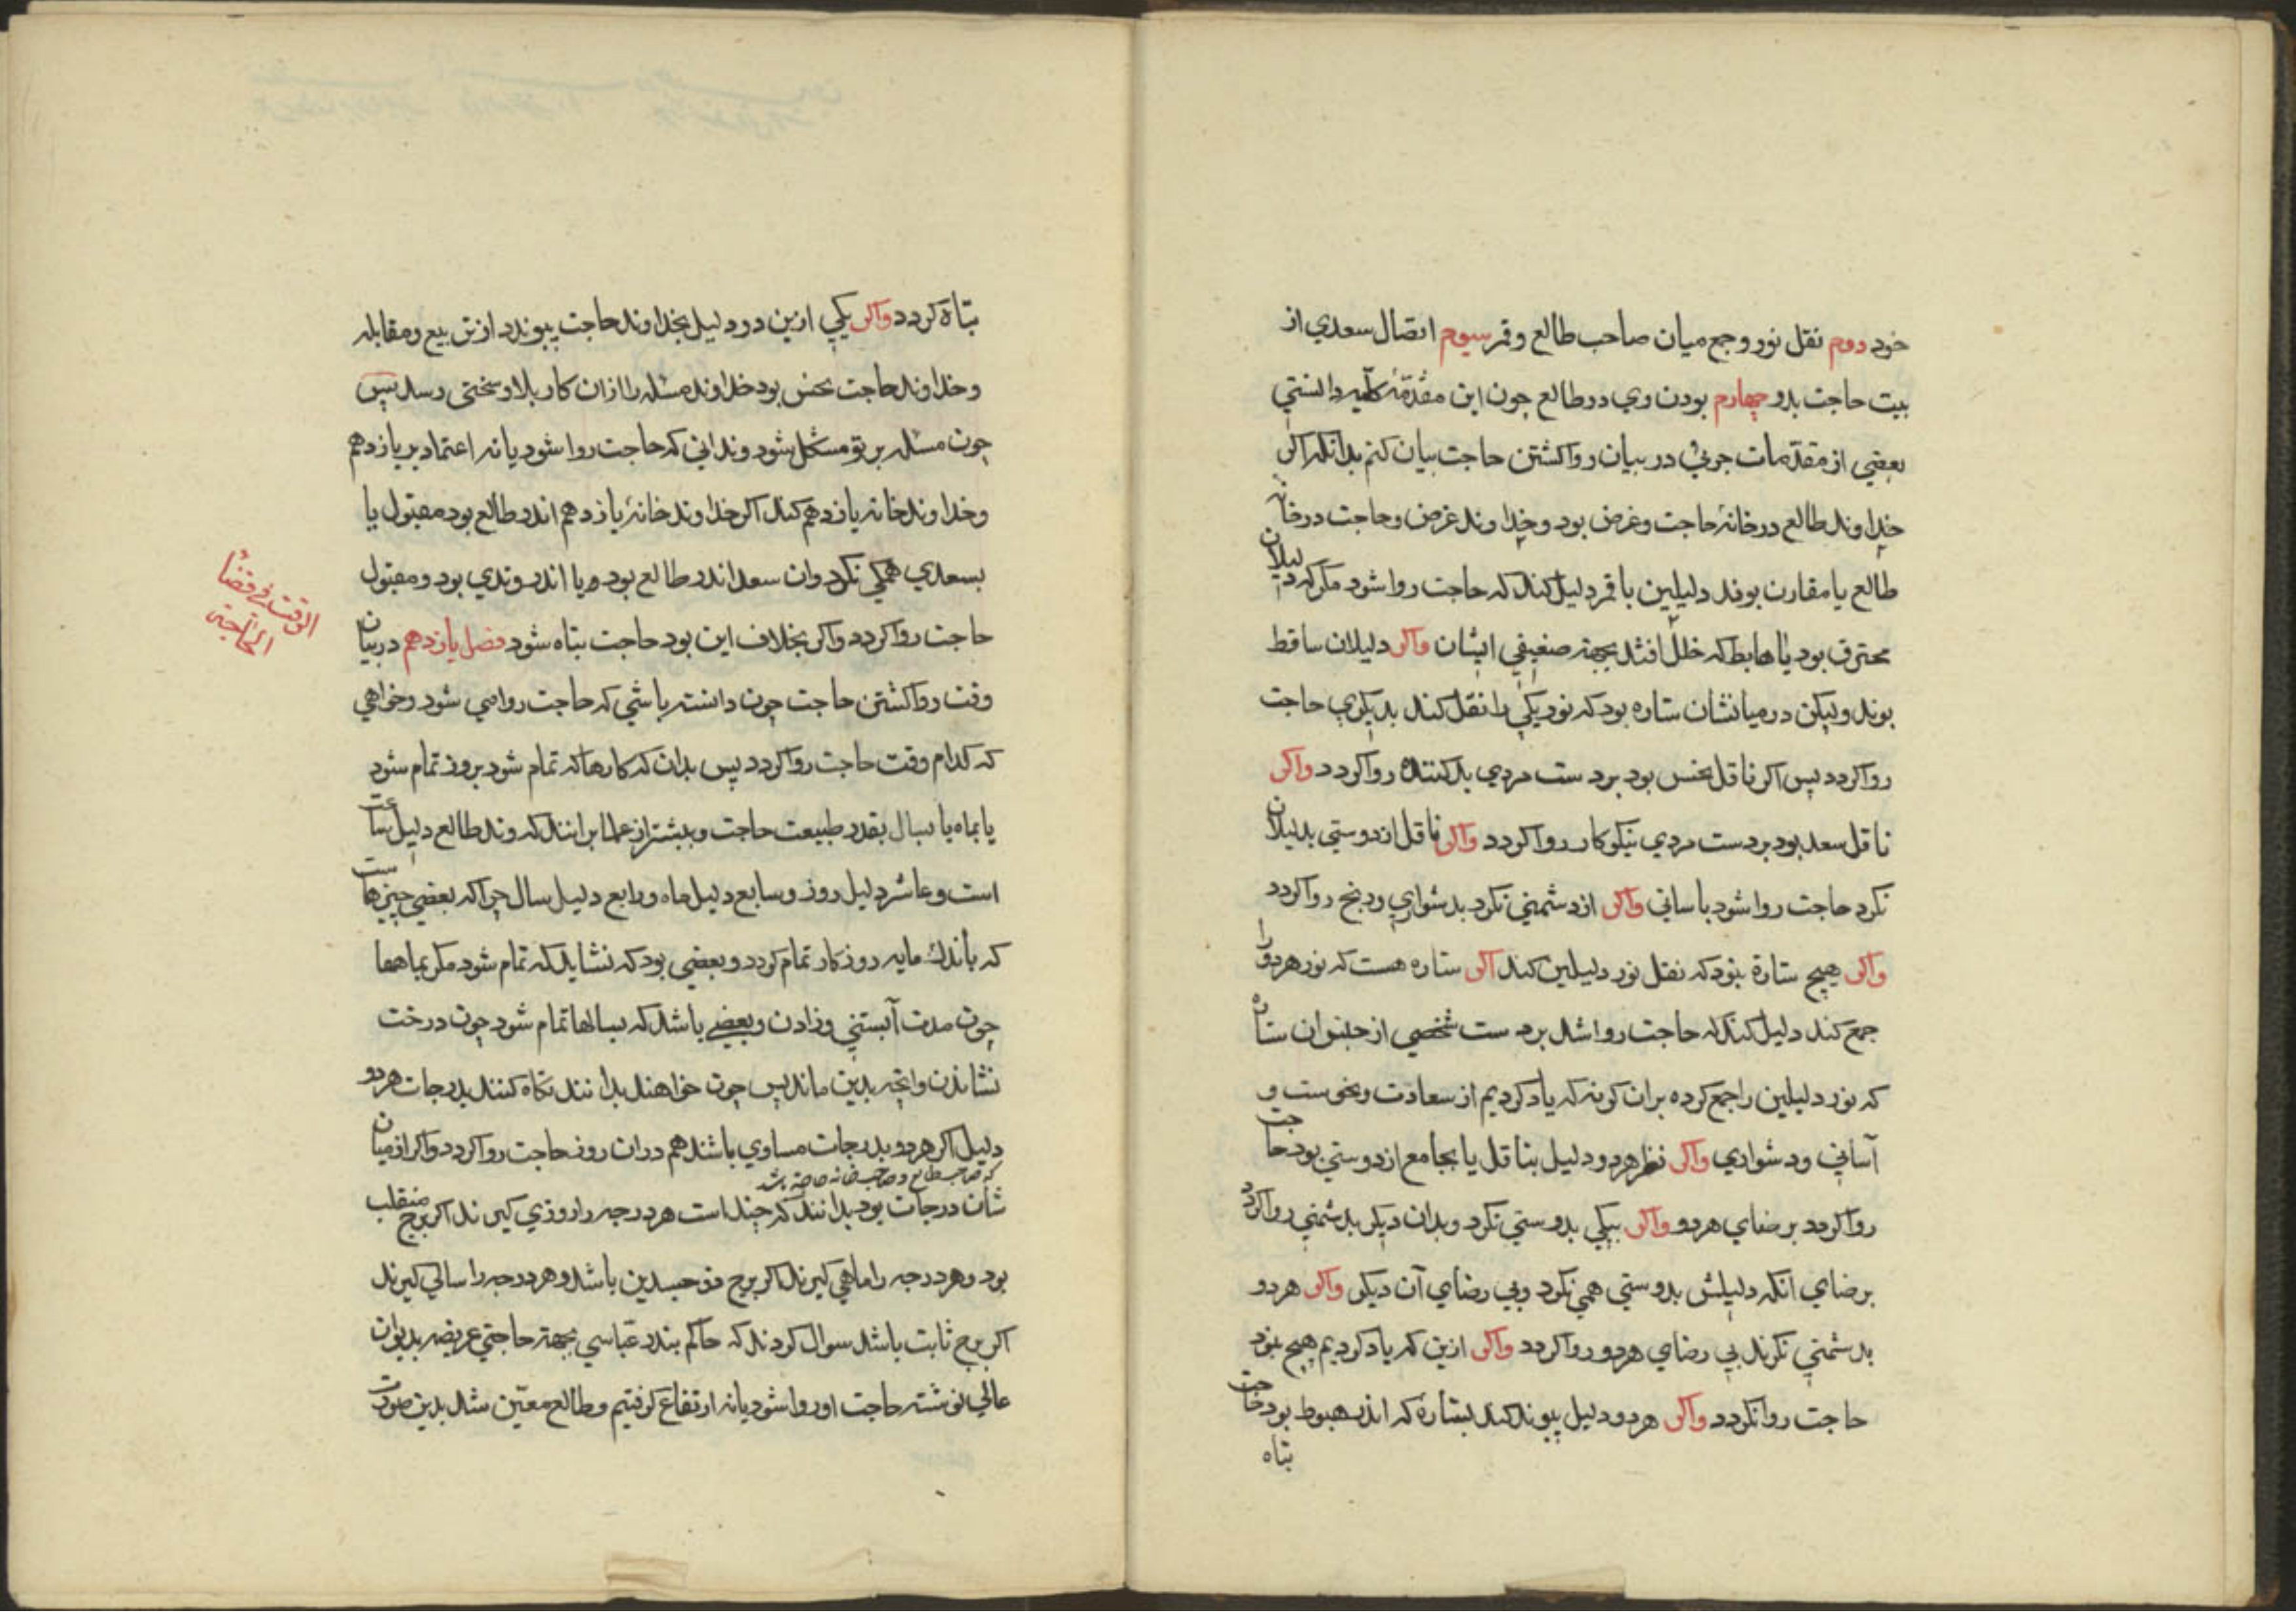 خود دوم نقل نور و جمع میان صاحب طالع و قمر سیوم اتصال سعدی از
بیت حاجت بدو چهارم بودن وی در طالع چون این مقدّمهٔ کلّیه دانستی
بعضی از مقدّمات جزئی در بیان روا کشتن حاجت بیان کنم بدانکه اکر
خداوند طالع در خانهٔ حاجت و غرض بود و خداوند غرض و حاجت در خانه
طالع یا مقارن بوند دلیلین با قمر دلیل کند که حاجت روا شود مکر که دلیلان
محترق بود یا هابط که خلل افتد بجهة ضعیفی ایشان واکر دلیلان ساقط
بوند ولیکن در میانشان ستاره بود که نور یکی را نقل کند بدیکری حاجت
روا کردد پس اکر ناقل نحس بود بردست مردی بد کننده روا کردد واکر
ناقل سعد بود بردست مردی نیکوکار روا کردد واکر ناقل از دوستی بدلیلان
نکرد حاجت روا شود باسانی واکر از دشمنی نکرد بدشواری ورنج روا کردد
واکر هیچ ستارة نبود که نقل نور دلیلین کند اکر ستاره هست که نور هردو را
جمع کند دلیل کند که حاجت روا شد بردست شخصی از خنوان ستاره
که نور دلیلین را جمع کرده بران کونه که یاد کردیم از سعادت ونحوست و
آسانی ودشواری واکر نظر هردو دلیل بناقل یا بجامع از دوستی بود حاجت
روا کردد برضای هردو واکر بیکی بدوستی نکرد وبدان دیکر بدشمنی روا کردد
برضای انکه دلیلش بدوستی همی نکرد وبی رضای آن دیکر واکر هردو
بدشمنی نکرند بی رضای هردو روا کردد واکر ازین که یاد کردیم هیچ نبود
حاجت روا نکردد واکر هردو دلیل پیوند کند بستارهٔ که اندر هبوط بود حاجت
تباه
تباه کردد واکر یکی ازین دو دلیل بخداوند حاجت پیوندد از تربیع ومقابله
وخداوند حاجت نحس بود خداوند مسئله را ازان کار بلا وسختی رسد پس
چون مسئله بر تو مشکل شود وندانی که حاجت روا شود یا نه اعتماد بر یازدهم
وخداوند خانه یازدهم کند اکر خداوند خانهٔ یازدهم اندر طالع بود مقبول یا
بسعدی همی نکرد وان سعد اندر طالع بود ویا اندر وتدی بود ومقبول
حاجت روا کردد واکر بخلاف این بود حاجت تباه شود فصل یازدهم در بیان
الوقت فی قضاء
الحاجتی
وقت روا کشتن حاجت چون دانسته باشی که حاجت روا می شود وخواهی
که کدام وقت حاجت روا کردد پس بدان که کارها که تمام شود بروز تمام شود
یا بماه یا بسال بقدر طبیعت حاجت وبیشتر از علما برانند که وتد طالع دلیل ساعت
است وعاشر دلیل روز وسابع دلیل ماه ورابع دلیل سال چرا که بعضی چیزها ست
که باندک مایه روزکار تمام کردد وبعضی بود که نشاید که تمام شود مکر بماهها
چون مدت آبستنی وزادن وبعضی باشد که بسالها تمام شود چون درخت
نشاندن وانچه بدین ماند پس چون خواهند بدانند نکاه کنند بدرجات هردو
دلیل اکر هردو بدرجات مساوی باشند هم دران روز حاجت روا کردد واکر از میان
که صاحب طالع و صاحب خانه حاجت باشد
شان درجات بود بدانند که چند است هر درجه را روزی کیرند اکر برج منقلب
بود وهر درجه را ماهی کیرند اکر برج ذو جسدین باشد وهر درجه را سالی کیرند
اکر برج ثابت باشد سوال کردند که حاکم بندر عباسی بجهة حاجتی عریضه بدیوان
عالی نوشته حاجت او روا شود یا نه ارتفاع کرفتیم وطالع معیّن شد بدین صورت